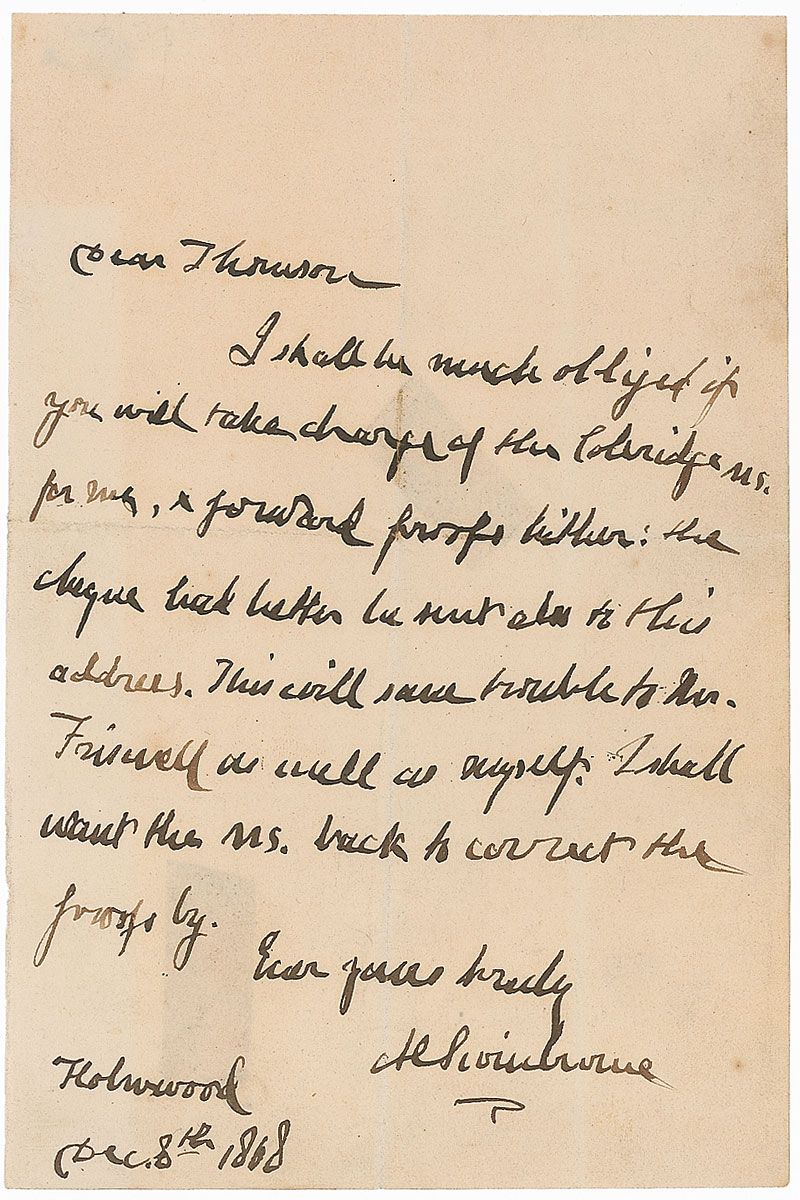 Dear Thomson
I shall be much obliged if
you will take charge of the Coleridge MS.
for me, & forward proofs hither: the
cheque had better be sent also to this
address. This will save trouble to Mr.
Friswell as well as myself. I shall
want the MS. back to correct the
proofs by.
Ever yours truly
ACSwinburne
Holmwood
Dec. 8th 1868